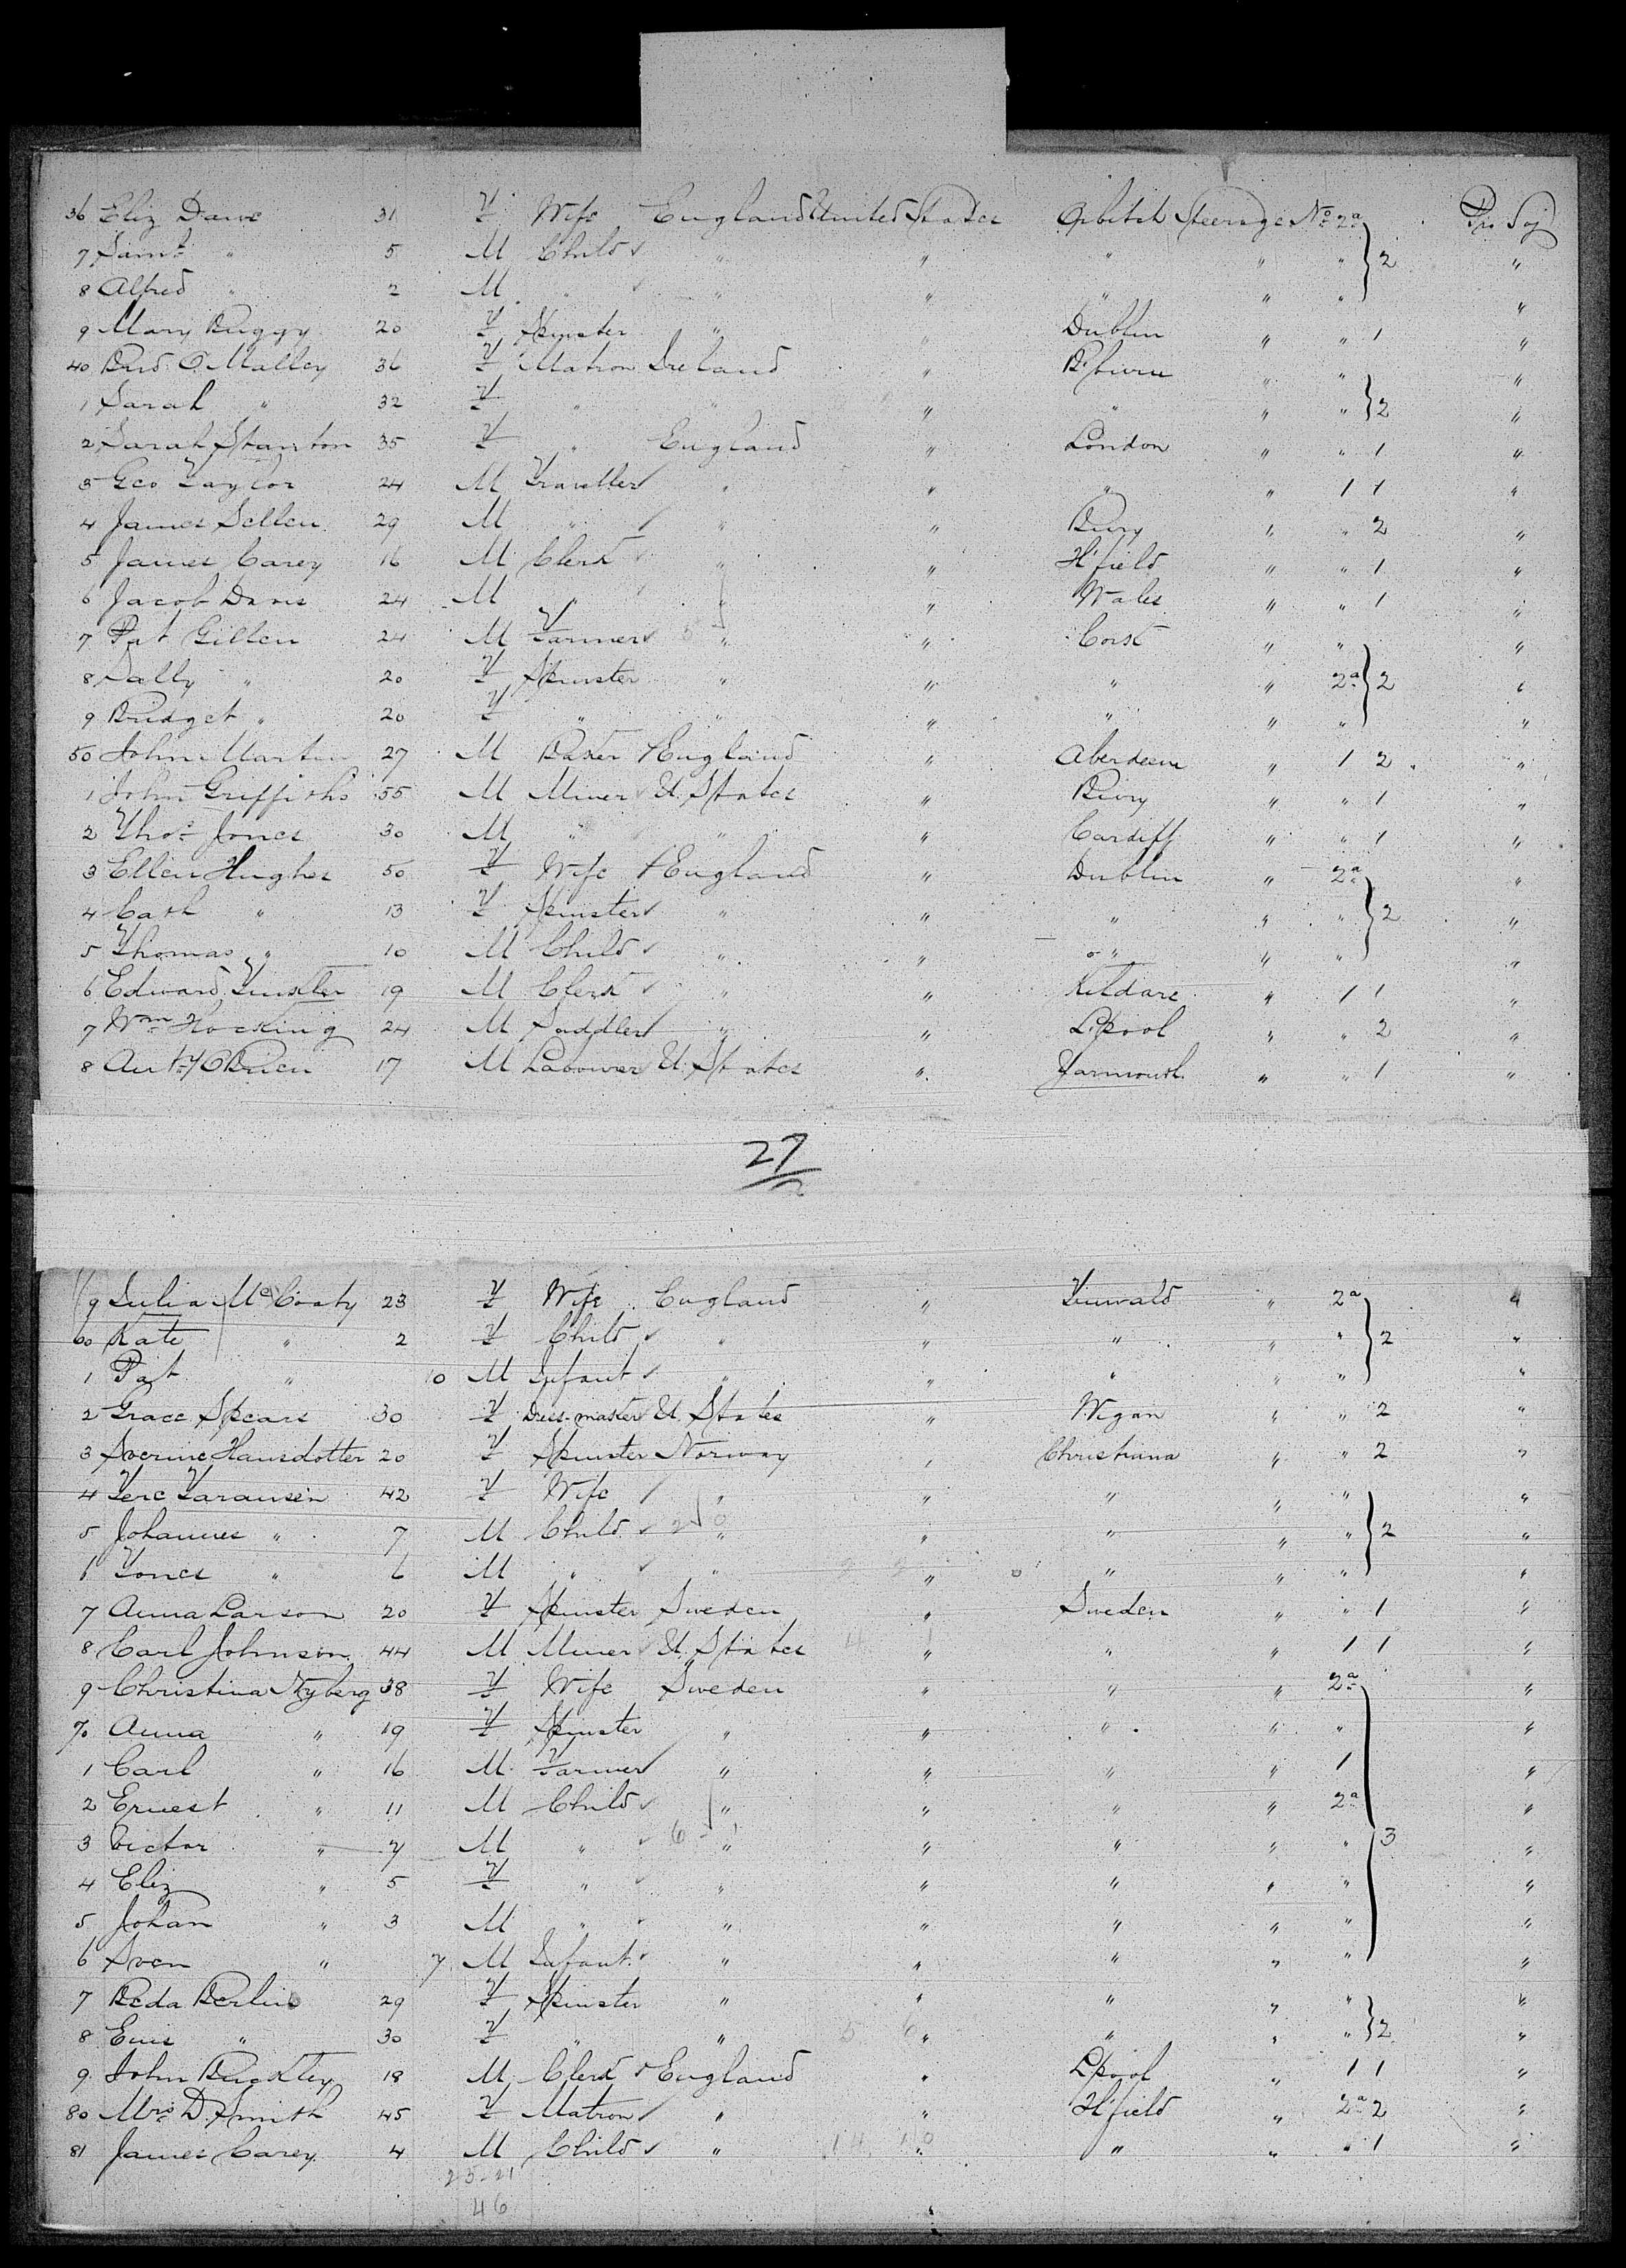 36 Eliz Dawe 31 F Wife England United States Steerage No 2a Pr Soj
7 Saml " 5 M Child " " " " " 2 "
8 Alfred " 2 M " " " " " " "
9 Mary Buggy 20 F Spinster " " Dublin " " 1 "
40 Brid O'Malley 36 F Matron Ireland " " " "
1 Sarah " 32 F " " " " " " 2 "
2 Sarah Stanton 35 F " England " London " " 1 "
3 Geo Taylor 24 M Traveller " " " " 1 1 "
4 James Sellen 29 M " " " Bury " " 2 "
5 James Carey 16 M Clerk " " H'field " " 1 "
6 Jacob Davis 24 M " " " Wales " " 1 "
7 Pat Gillen 24 M Farmer " " Cork " " "
8 Sally " 20 F Spinster " " " " 2a 2 "
9 Bridget " 20 F " " " " " " "
50 John Martin 27 M Baker England " Aberdeen " 1 2 "
1 John Griffiths 55 M Miner U. States " Bury " " 1 "
2 Thos Jones 30 M " " " Cardiff " " 1 "
3 Ellen Hughes 50 F Wife England " Dublin " 2a "
4 Cath " 13 F Spinster " " " " " 2 "
5 Thomas " 10 M Child " " " " " "
6 Edward 19 M Clerk " " Kildare " 1 1 "
7 Wm Hocking 24 M Saddler " " L'pool " " 2 "
8 Anty O'Brien 17 M Labourer U. States " Yarmouth " " 1 "
27
9 Julia McCoaty 23 F Wife England " " 2a "
60 Kate " 2 F Child " " " " " 2 "
1 Pat " 10 M Infant " " " " " "
2 Grace Spears 30 F U. States " Wigan " " 2 "
3 Severine Hansdotter 20 F Spinster Norway " Christiana " " 2 "
4 42 F Wife " " " " " "
5 Johannes " 7 M Child " " " " " 2 "
6 " 6 M " " " " " " "
7 Anna Larson 20 F Spinster Sweden " Sweden " " 1 "
8 Carl Johnson 44 M Miner U. States " " " 1 1 "
9 Christina Nyberg 38 F Wife Sweden " " " 2a "
70 Anna " 19 F Spinster " " " " " "
1 Carl " 16 M Farmer " " " " 1 "
2 Ernest " 11 M Child " " " " 2a "
3 Victor " 7 M " " " " " " 3 "
4 Eliz " 5 F " " " " " " "
5 Johan " 3 M " " " " " " "
6 Sven " 7 M Infant " " " " " "
7 Beda Berlin 29 F Spinster " " " " " "
8 " 30 F " " " " " " 2 "
9 John Buckley 18 M Clerk England " L'pool " 1 1 "
80 Mrs D. Smith 45 F Matron " " H'field " 2a 2 "
81 James Carey 4 M Child " " " " " 1 "
25-21
46